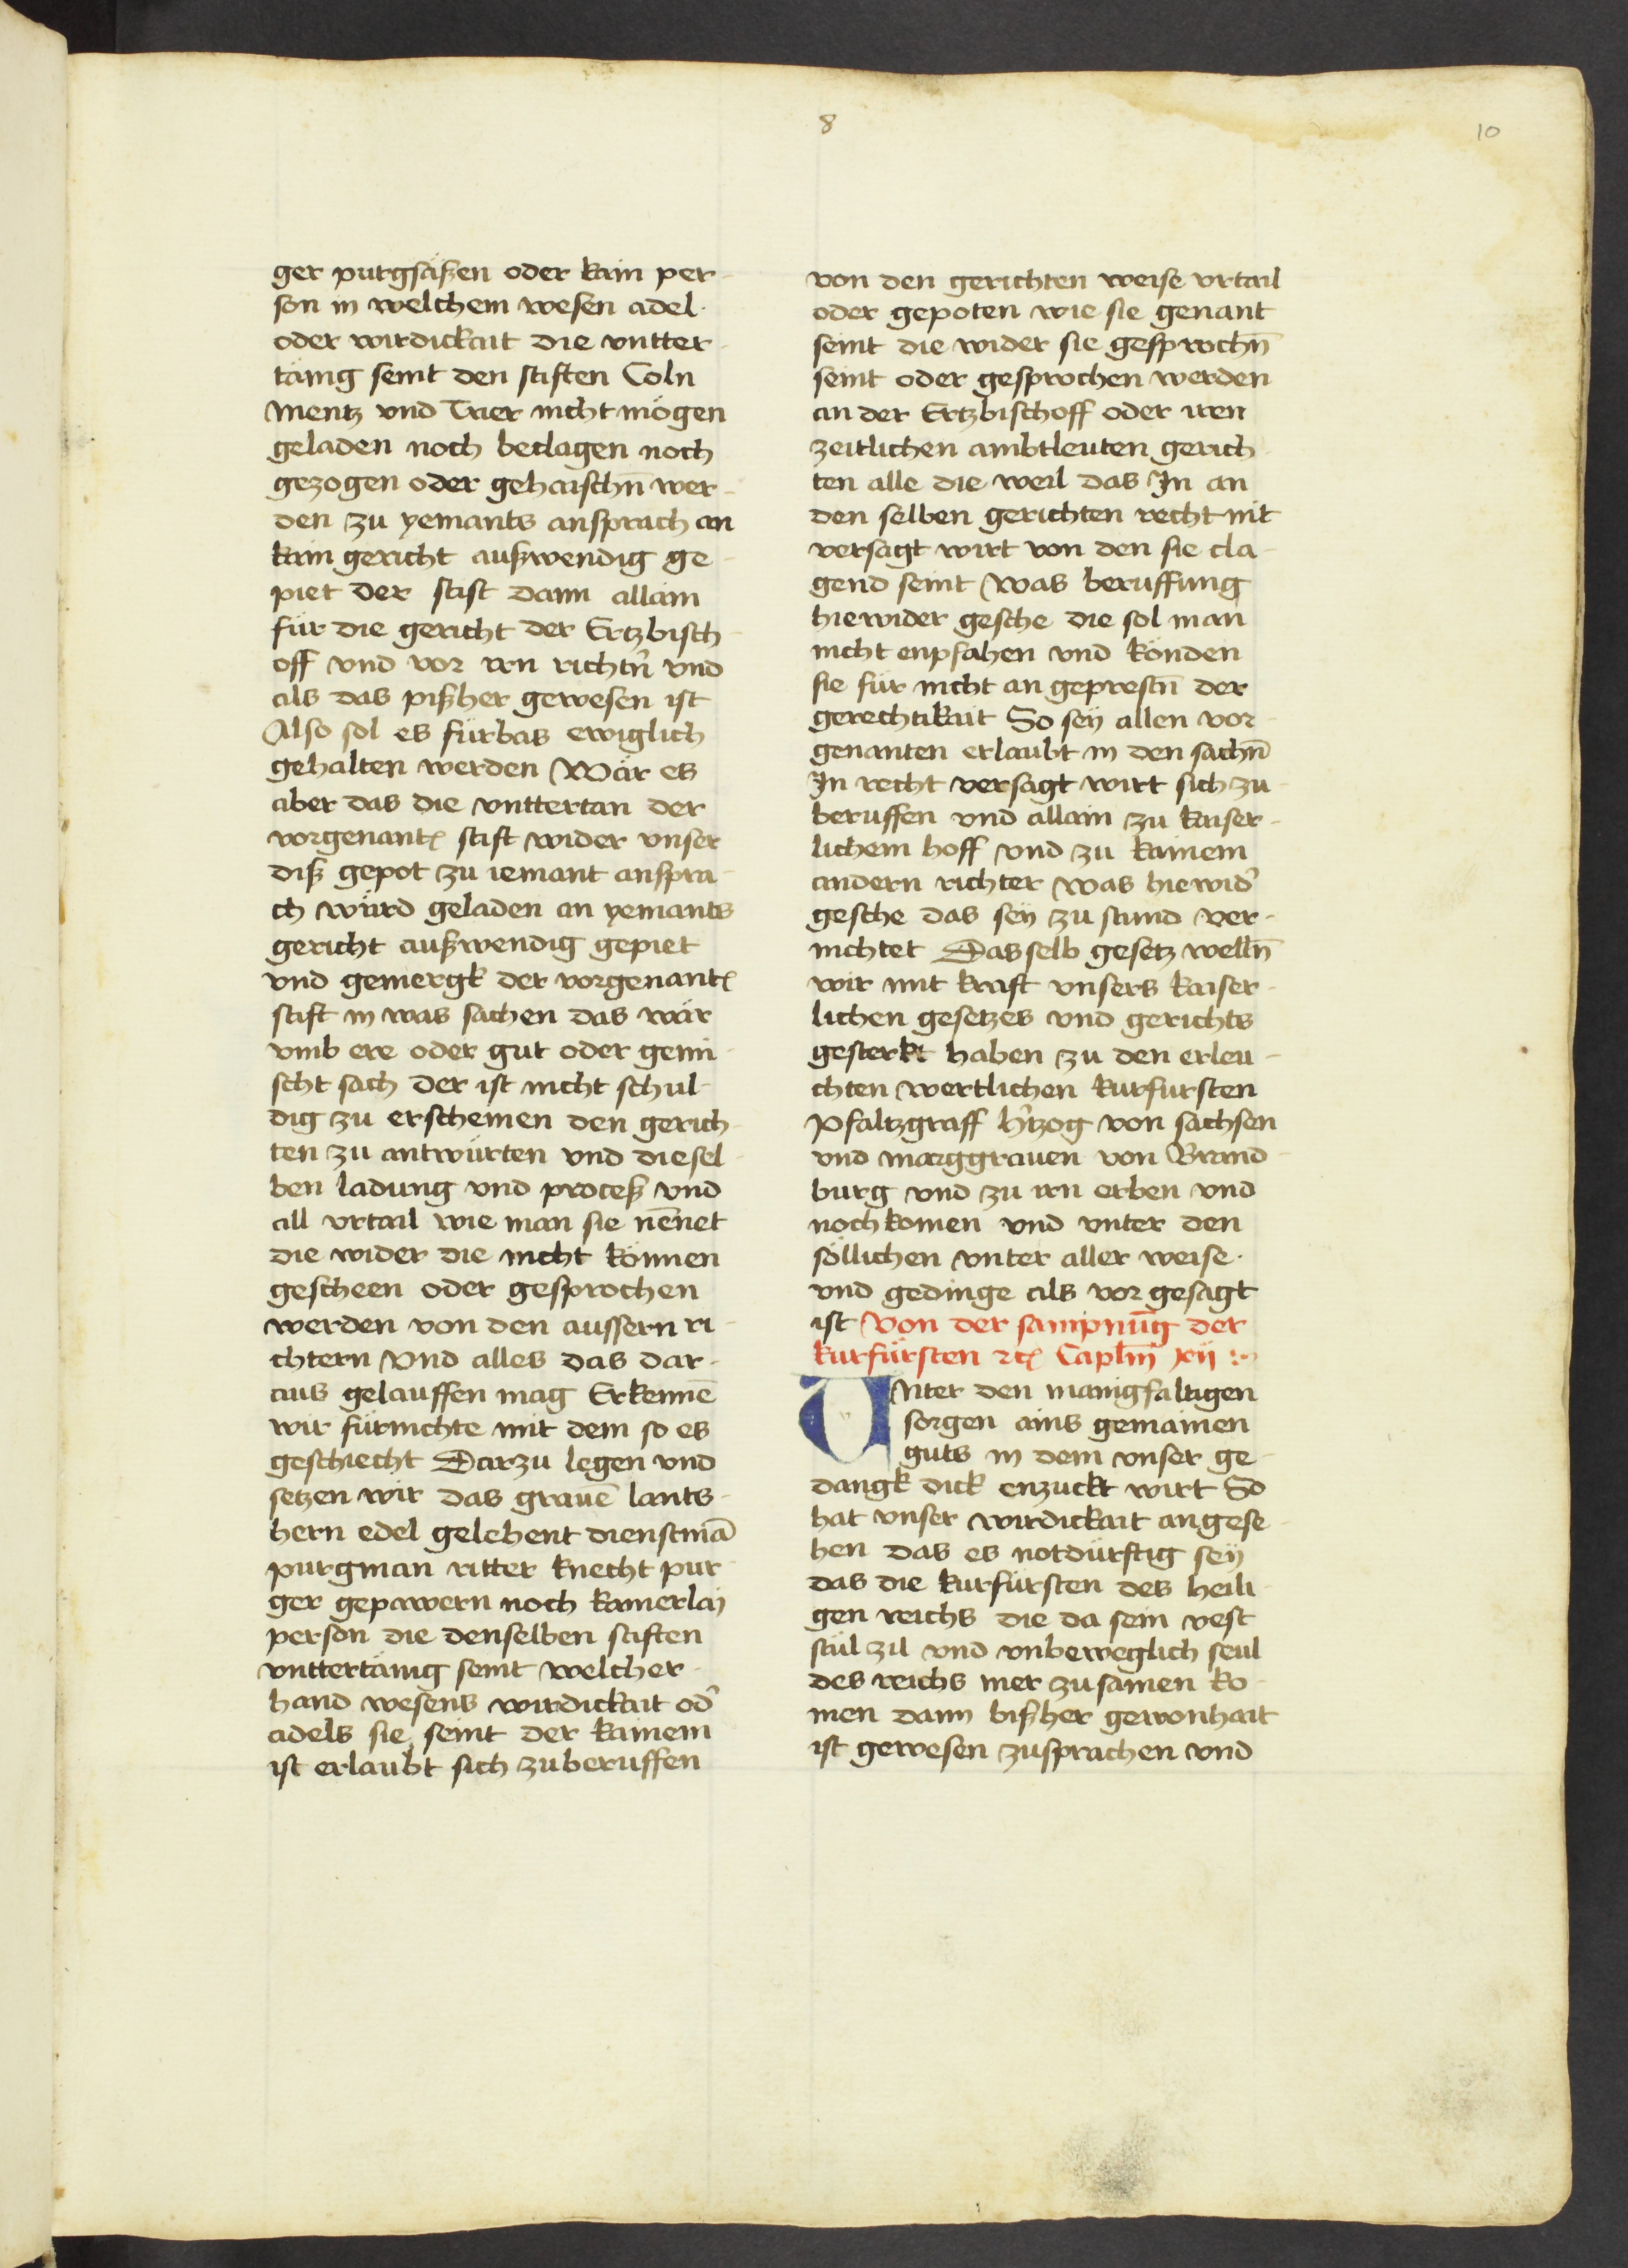 8
10
ger purgsäßen oder kain per-
son in welchem wesen adel
oder wirdickait die vntter-
tänig seint den stiften Coln
Mentz vnd Trier nicht mögen
geladen noch beclagen noch
gezogen oder gehaischn̄ wer-
den zu yemants ansprach an
kain gericht außwendig ge-
piet der stift dann allain
für die gericht der Ertzbisch
off vnd vor irn richtn̄ vnd
als das pißher gewesen ist
Also sol es fürbas ewiglich
gehalten werden Wär es
aber das die vnttertan der
vorgenantē stift wider vnser
diß gepot zu iemant anspra-
ch würd geladen an yemants
gericht außwendig gepiet
vnd gemergk der vorgenantē
stift in was sachen das wär
vmb ere oder gut oder gemi-
scht sach der ist nicht schul-
dig zu erscheinen den gerich
ten zu antwürten vnd diesel-
ben ladung vnd proceß vnd
all vrtail wie man sie nēnet
die wider die nicht können
gescheen oder gesprochen
werden von den aussern ri-
chtern Vnd alles das dar-
aus gelauffen mag Erkennē
wir fürnichte mit dem so es
geschiecht Darzu legen vnd
setzen wir das grauē lants-
hern edel gelehent dienstmā
purgman ritter knecht pur
ger gepawern noch kainerlaÿ
person die denselben stiften
vnttertänig seint welcher-
hand wesens wirdickait od̛
adels sie seint der kainem
ist erlaubt sich zuberuffen
von den gerichten weise vrtail
oder gepoten wie sie genant
seint die wider sie gesprochn̄
seint oder gesprochen werden
an der Ertzbischoff oder iren
zeitlichen ambtleuten gerich
ten alle die weil das In an
den selben gerichten recht nit
versagt wirt von den sie cla-
gend seint Was beruffung
hiewider gesche die sol man
nicht enpfahen vnd könden
sie für nicht an geprestn̄ der
gerechtikait So seÿ allen vor-
genanten erlaubt in den sachn̄
In recht versagt wirt sich zu-
beruffen vnd allain zu kaiser-
lichem hoff vnd zu kainem
andern richter Was hiewid̛
gesche das seÿ zu stund ver-
nichtet Dasselb gesetz welln̄
wir mit kraft vnsers kaiser-
lichen gesetzes vnd gerichts
gesterkt haben zu den erleu-
chten wertlichen kurfursten
Pfaltzgraff h̛tzog von sachsen
vnd marggrauen von Brand-
burg vnd zu irn erben vnd
nochkomen vnd vnter den
söllichen vnter aller weise
vnd gedinge als vor gesagt
ist Von der sampnūg der
kurfürsten ꝛcꝭ Caplm̄ xij :~
Vnter den manigfaltigen
sorgen ains gemainen
guts in dem vnser ge-
dangk dick enzuckt wirt So
hat vnser wirdickait angese-
hen das es notdürftig seÿ
das die kurfürsten des heili-
gen reichs die da sein vest
stül zil vnd vnbeweglich seul
des reichs mer zusamen ko-
men dann bißher gewonhait
ist gewesen zusprachen vnd